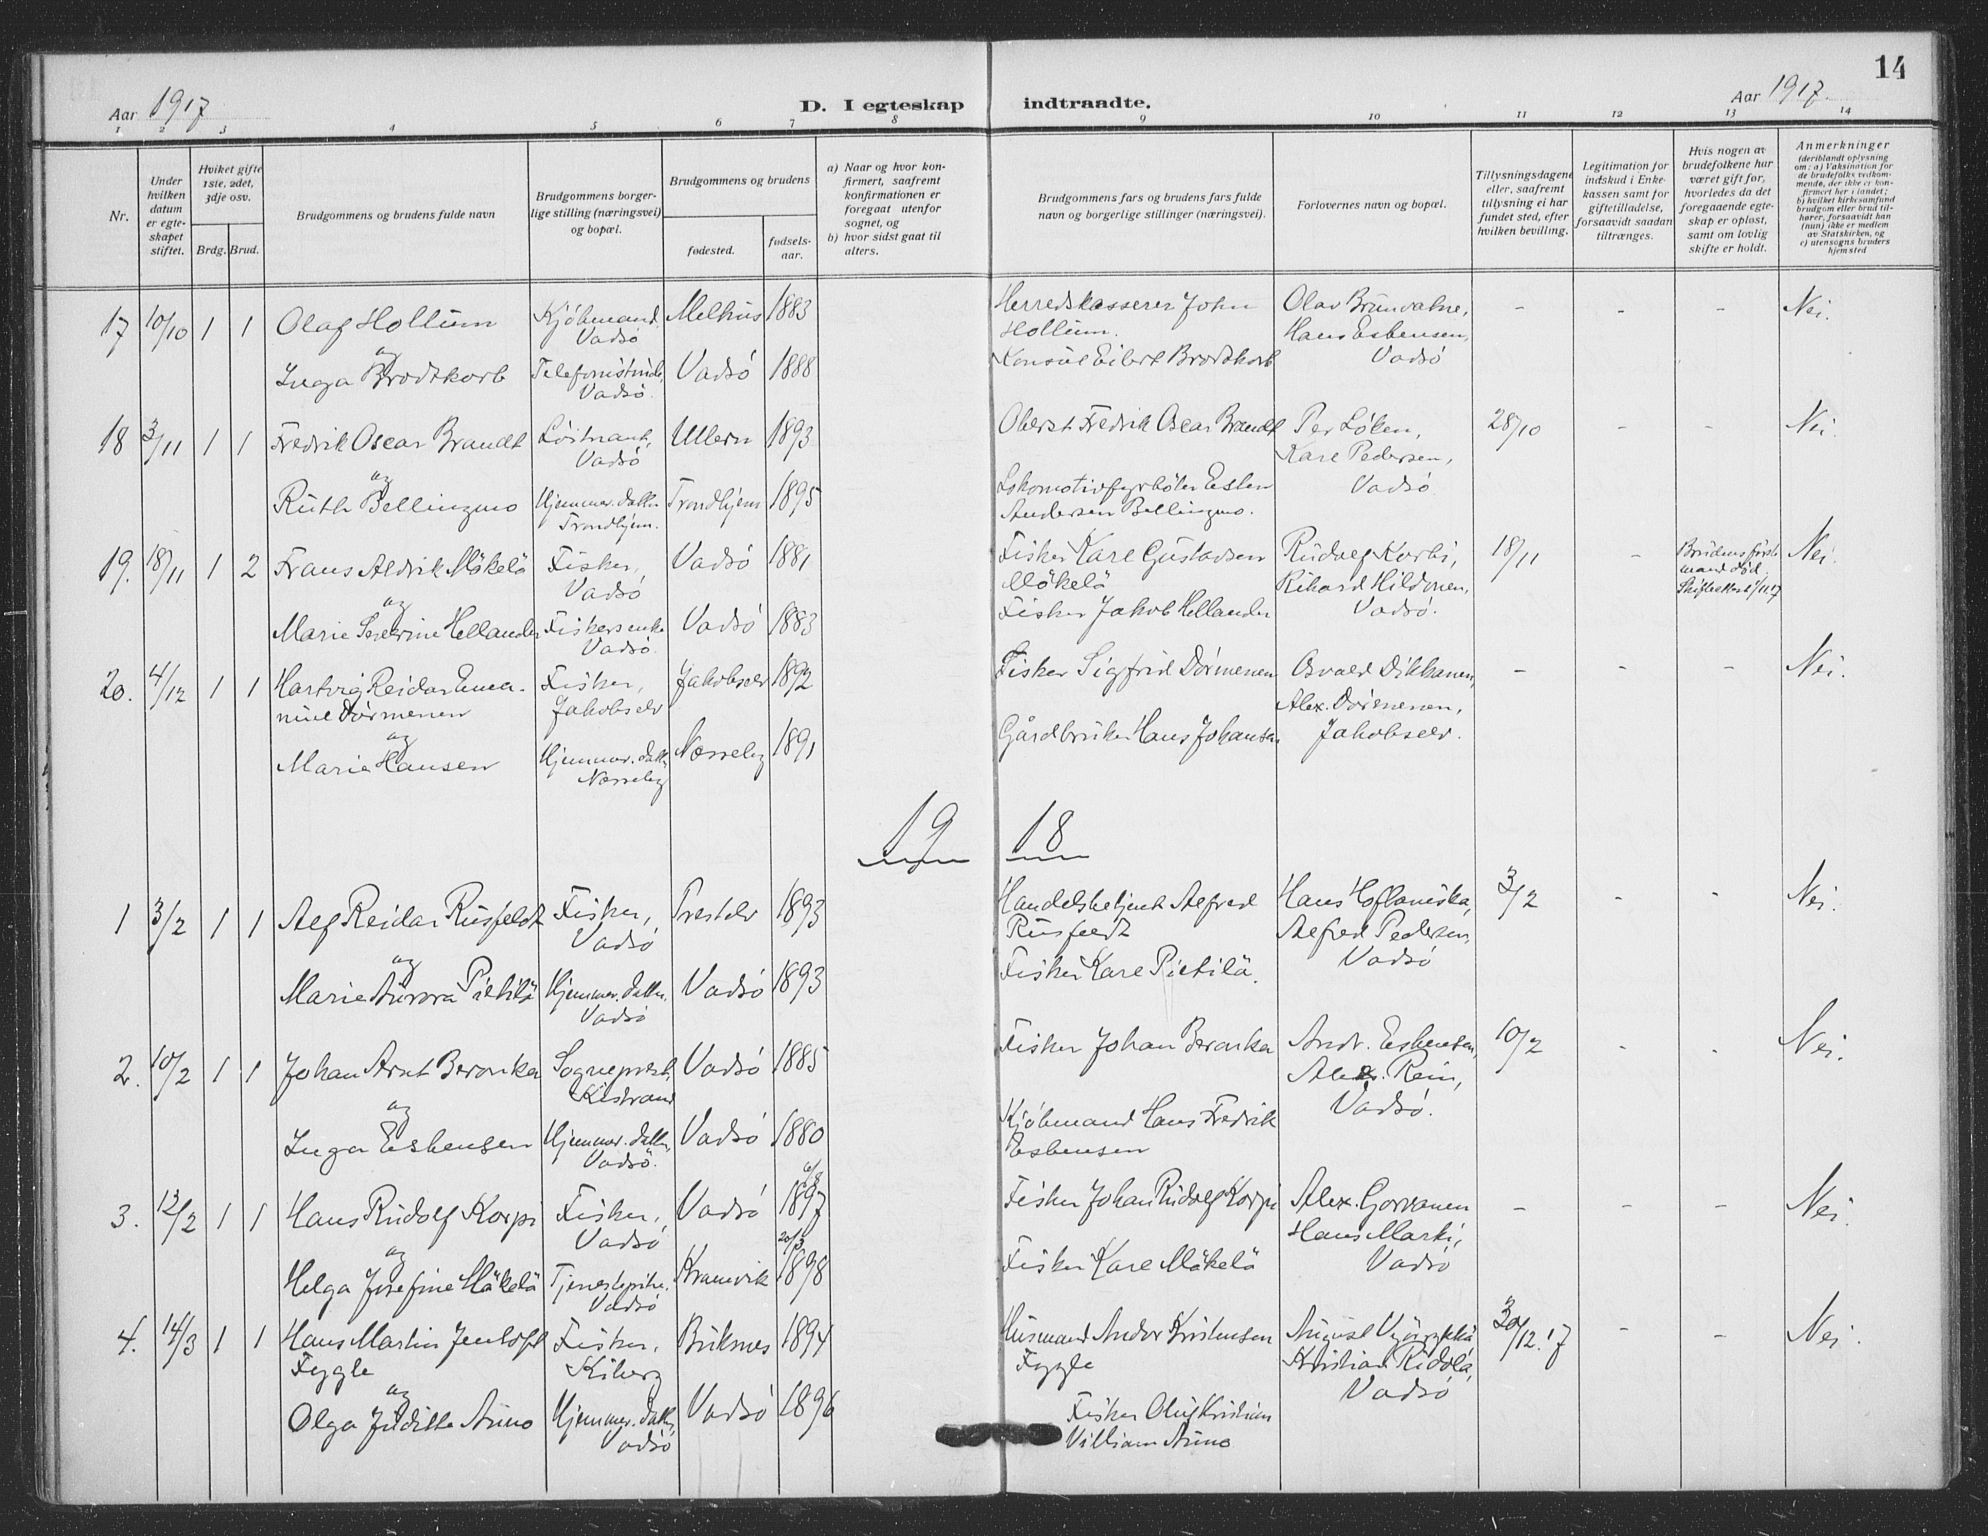 14
Aar 1917
D. I egteskap indtraadte.
Aar 1917.
1 2 3 4 5 6 7 8 9 10 11 12 13 14
Nr.
Under hvilken datum er egteskapet stiftet.
Hvilket gifte 1ste, 2det, 3dje osv.
Brdg. Brud.
Brudgommens og brudens fulde navn
Brudgommens borgerlige stilling (næringsvei) og bopæl.
Brudgommens og brudens
fødested.
fødselsaar.
a) Naar og hvor konfirmert, saafremt konfirmationen er foregaat utenfor sognet, og
b) hvor sidst gaat til alters.
Brudgommens fars og brudens fars fulde navn og borgerlige stillinger (næringsvei).
Forlovernes navn og bopæl.
Tillysningsdagene eller, saafremt tillysning ei har fundet sted, efter hvilken bevilling.
Legitimation for indskud i Enkekassen samt for giftetilladelse, forsaavidt saadan tiltrænges.
Hvis nogen av brudefolkene har været gift før, hvorledes da det foregaaende egteskap er opløst, samt om lovlig skifte er holdt.
Anmerkninger
(deriblandt oplysning om: a) Vaksination for de brudefolks vedkommende, der ikke er konfirmert her i landet;
b) hvilket kirkesamfund brudgom eller brud tilhører, forsaavidt han (hun) ikke er medlem av Statskirken, og
c) utensogns bruders hjemsted
17 10/10 1 1 Olaf Hollum Kjöbmand, Vadsö Melhus 1883 Herredskasserer John Hollum. Olav Brunvatne, Hans Esbensen, Vadsö - - - Nei.
og
Inga Brodtkorb Telefonistinde, Vadsö. Vadsö 1888 Konsul Eilert Brodtkorb
18 3/11 1 1 Fredrik Oscar Brandt Löitnant, Vadsö Ullern 1893 Oberst Fredrik Oscar Brandt Per Löken, Karl Pedersen, Vadsö 28/10 - - Nei.
og
Ruth Bellingmo Hjemmev. datter Trondhjem. Trondhjem 1895 Lokomotivfyrböter Esten Andersen Bellingmo.
19. 18/11 1 2 Frans Aldrik Mäkelä Fisker, Vadsö Vadsö 1881 Fisker Karl Gustavsen Mäkelä Rudolf Korbi, Rikard Hildonen, Vadsö. 18/11 - Brudens förste mand död. Skifteattest 1/11 17 Nei.
og
Marie Severine Hellander Fiskersenke Vadsö. Vadsö 1883 Fisker Jakob Hellander
20. 4/12 1 1 Hartvig Reidar Emanuel Dörmenen Fisker, Jakobselv Jakobselv 1892 Fisker Sigfrid Dörmenen Osvald Dikkanen, Alex. Dörmenen, Jakobselv. - - - Nei.
og
Marie Hansen Hjemmev. datt. Nesseby Nesseby 1891 Gårdbruker Hans Johansen
19 18
1 3/2 1 1 Alf Reidar Rusfeldt Fisker, Vadsö Prestelv 1893 Handelsbetjent Alfred Rusfeldt Hans Alfred Pedersen, Vadsö 3/2 - - Nei.
og
Marie Aurora Pietilä Hjemmev. datter. Vadsö Vadsö 1893 Fisker Karl Pietilä.
2. 10/2 1 1 Johan Arnt Beronka Sogneprest, Kistrand Vadsö 1885 Fisker Johan Beronka Andr. Esbensen, Alex. Rein, Vadsö. 10/2 - - Nei.
og
Inga Esbensen Hjemmev. datter, Vadsö. Vadsö 1880 Kjöbmand Hans Fredrik Esbensen
3. 12/2 1 1 Hans Rudolf Korpi Fisker, Vadsö Vadsö 1897 Fisker Johan Rudolf Korpi Alex. Gorvanen Hans Marki, Vadsö - - - Nei.
og
Helga Josefine Mäkelä Tjenestepike. Vadsö Kramvik 20/3 1898 Fisker Karl Mäkelä
4. 14/3 1 1 Hans Martin Jentoft Fygle Fisker, Kiberg Buksnes 1894 Husmand Andor Kristensen Fygle August Kristian Ridola, Vadsö 30/12.17 - - Nei.
og
Olga Juditte Auno Hjemmev. datter, Vadsö Vadsö 1896 Fisker Oluf Kristian William Auno